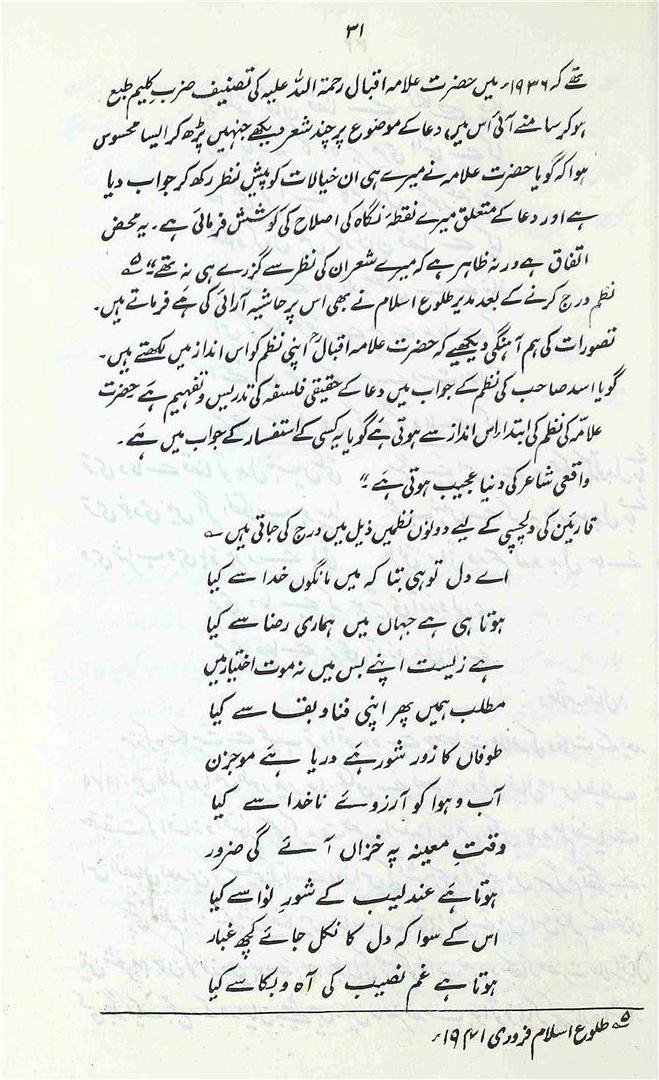 ۳۱
تھے کہ ۱۹۳۶ء میں حضرت علامہ اقبال رحمۃ اللہ علیہ کی تصنیف ضربِ کلیم طبع
ہو کر سامنے آئی اس میں دعا کے موضوع پر چند شعر دیکھے جنہیں پڑھ کر ایسا محسوس
ہوا کہ گویا حضرت علامہ نے میرے ہی ان خیالات کو پیش نظر رکھ کر جواب دیا
ہے اور دعا کے متعلق میرے نقطۂ نگاہ کی اصلاح کی کوشش فرمائی ہے۔ یہ محض
اتفاق ہے ورنہ ظاہر ہے کہ میرے شعر ان کی نظر سے گزرے ہی نہ تھے" ۵؎
نظم درج کرنے کے بعد مدیر طلوع اسلام نے بھی اس پر حاشیہ آرائی کی ہے فرماتے ہیں۔
تصورات کی ہم آہنگی دیکھیے کہ حضرت علامہ اقبالؒ اپنی نظم کو اس انداز میں لکھتے ہیں۔
گویا اسد صاحب کی نظم کے جواب میں دعا کے حقیقی فلسفہ کی تدریس و تفہیم ہے حضرت
علامہ کی نظم کی ابتدا اس انداز سے ہوتی ہے گویا یہ کسی کے استفسار کے جواب میں ہے۔
واقعی شاعر کی دنیا عجیب ہوتی ہے۔"
قارئین کی دلچسپی کے لیے دونوں نظمیں ذیل میں درج کی جاتی ہیں ؎
اے دل تو ہی بتا کہ میں مانگوں خدا سے کیا
ہوتا ہی ہے جہاں میں ہماری رضا سے کیا
ہے زیست اپنے بس میں نہ موت اختیار میں
مطلب ہمیں پھر اپنی فنا و بقا سے کیا
طوفاں کا زور شور ہے دریا ہے موجزن
آب و ہوا کو آرزوئے ناخدا سے کیا
وقتِ معینہ پہ خزاں آئے گی ضرور
ہوتا ہے عندلیب کے شور نوا سے کیا
اس کے سوا کہ دل کا نکل جائے کچھ غبار
ہوتا ہے غم نصیب کی آہ و بکا سے کیا
۵؎ طلوع اسلام فروری ۱۹۴۱ء